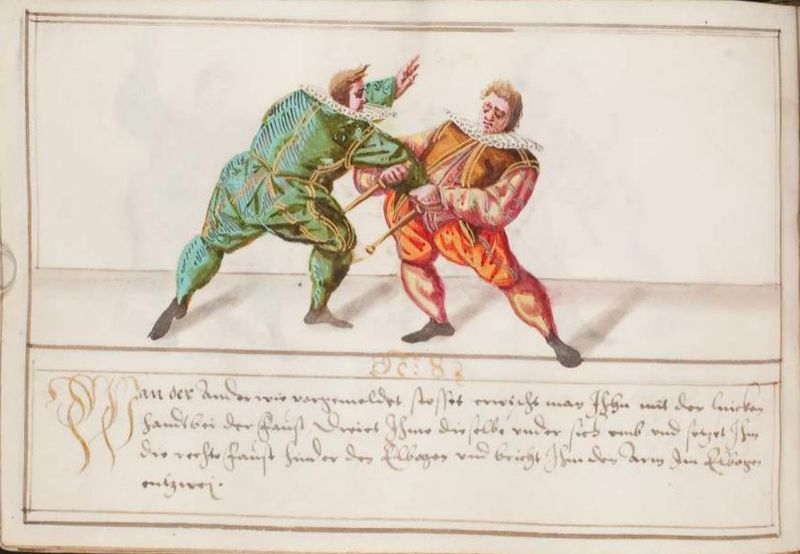 N: 8:
Wan der Ander wie vorgemeldet stosset erwischt man Ihn mit der lincken
handt bei der faust Dreiet Ihme dieselbe under sich umb und setzet Ihm
die rechte faust hinder den Elbogen und bricht Ihm den Arm Im Elbogen
entzwei.